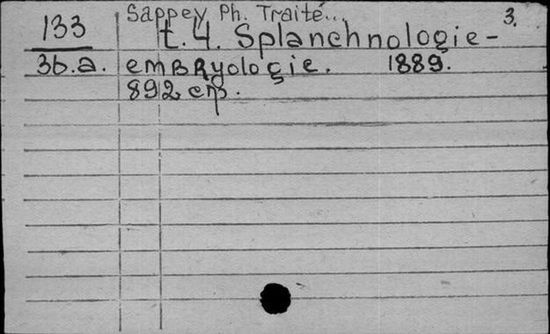 Sappey Ph. Traité... 3.
133 t. 4. Splanchnologie-
3b.a. embryologie. 1889.
892 стр.